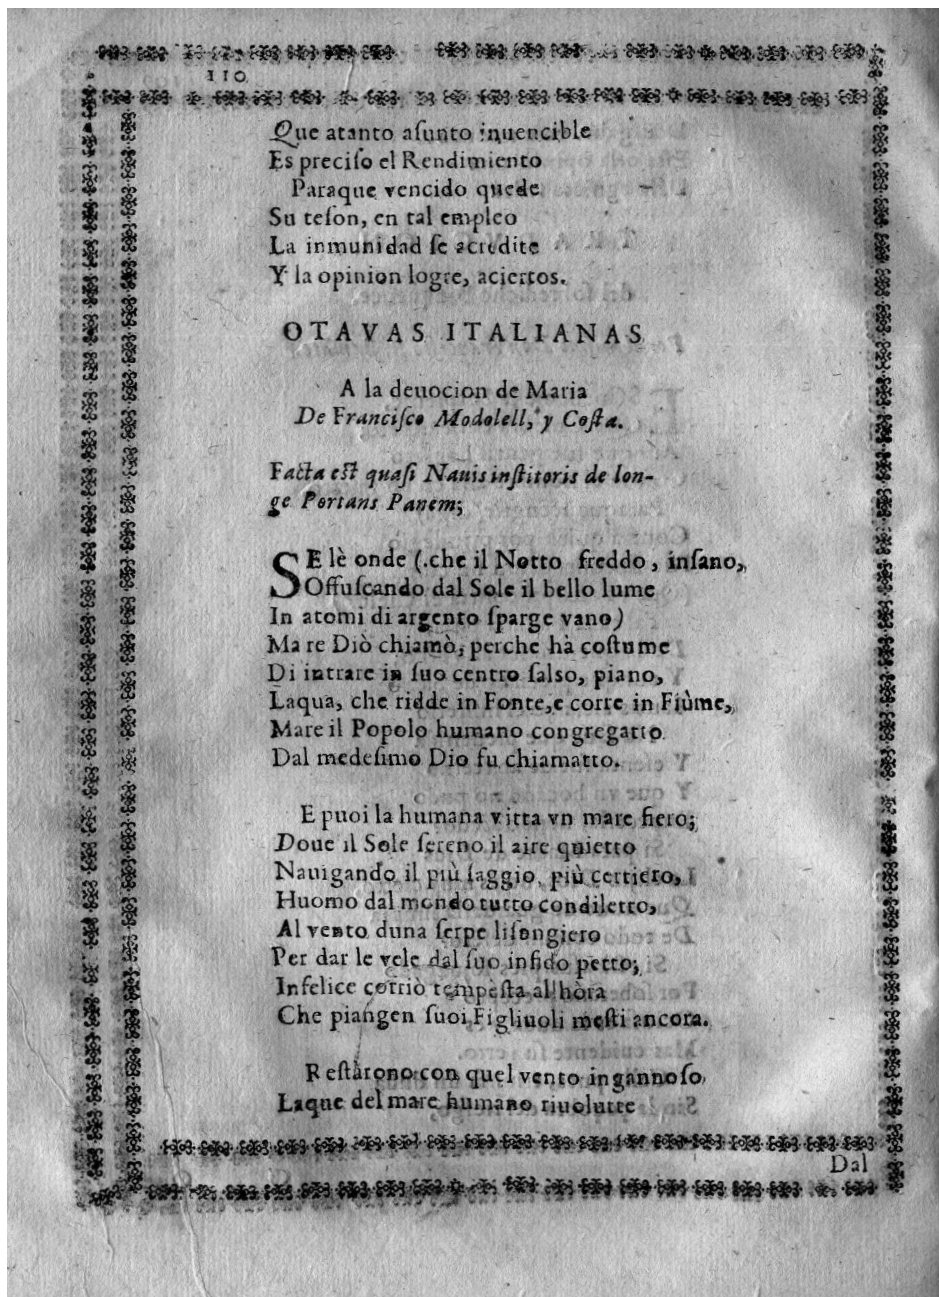 110
Que atanto aſunto inuencible
Es preciſo el Rendimiento
Paraque vencido quede
Su teſon, en tal empleo
La inmunidad ſe acredite
Y la opinion logre, aciertos.
OTAVAS ITALIANAS
A la deuocion de Maria
De Franciſco Modolell, y Coſta.
Facta eſt quaſi Nauis inſtitoris de lon-
ge Portans Panem;
SE lè onde (.che il Notto freddo, inſano,
Offuſcando dal Sole il bello lume
In atomi di argento ſparge vano)
Ma re Diò chiamò, perche hà coſtume
Di intrare in ſuo centro ſalso, piano,
Laqua, che ridde in Fonte, e corre in Fiùme,
Mare il Popolo humano congregatto
Dal medeſimo Dio fu chiamatto.
E puoi la humana vitta vn mare fiero;
Doue il Sole ſereno il aire quietto
Nauigando il più ſaggio, più certiero,
Huomo dal mondo tutto condiletto,
Al vento duna ſerpe liſongiero
Per dar le vele dal ſuo infido petto;
Infelice corriò tempèſta al'hòra
Che piangen ſuoi Figliuoli meſti ancora.
Reſtàrono con quel vento ingannoſo
Laque del mare humano riuolutte
Dal